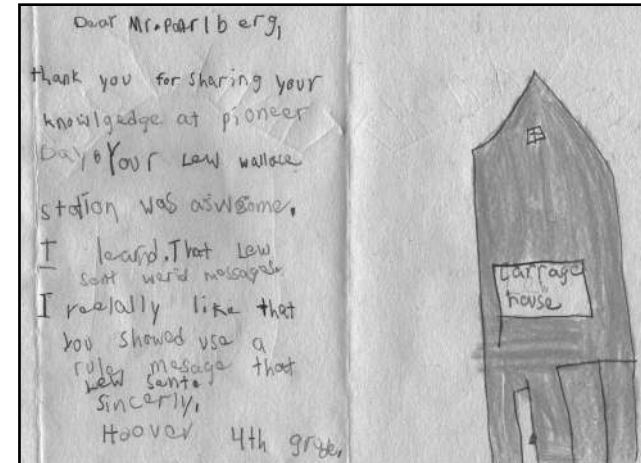 Dear Mr. Paarlberg,
thank you for sharing your
knowilgedge at pioneer
Day. Your Lew wallace
station was aswsome.
I leard. That Lew
sent werid messages.
I reelally like that
you showed use a
rule mesage that
Lew sente.
Sincerly,
Hoover 4th grade.
Carrage
house